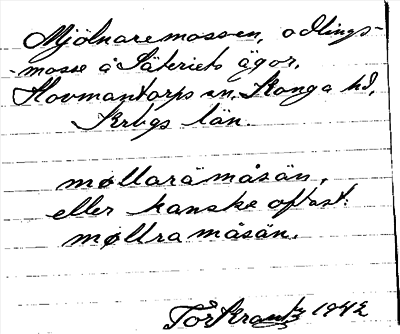 Mjölnaremossen, odlings-
-mosse å Säteriets ägor,
Hovmantorps sn. Konga hd,
Krbgs län.
møllarämåsän,
eller kanske oftast:
møllramåsän.
Tor Krantz 1942